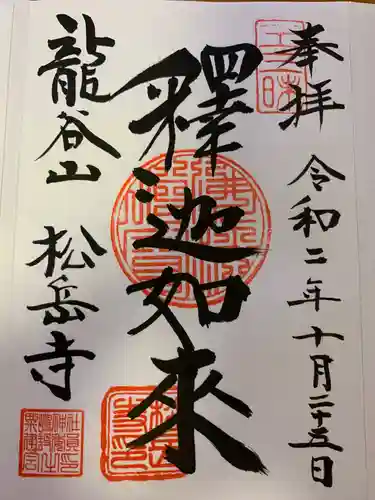 奉拝
令和二年十月二十五日
釋迦如來
龍谷山
松岳寺